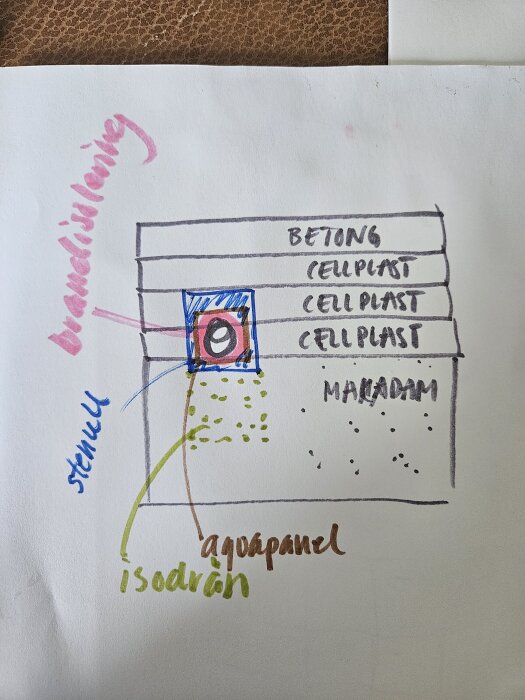 brandisolering
BETONG
CELLPLAST
CELLPLAST
CELLPLAST
MAKADAM
stenull
aquapanel
isodrän